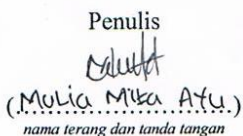 Penulis
(Mulia Mika Ayu.)
nama terang dan tanda tangan